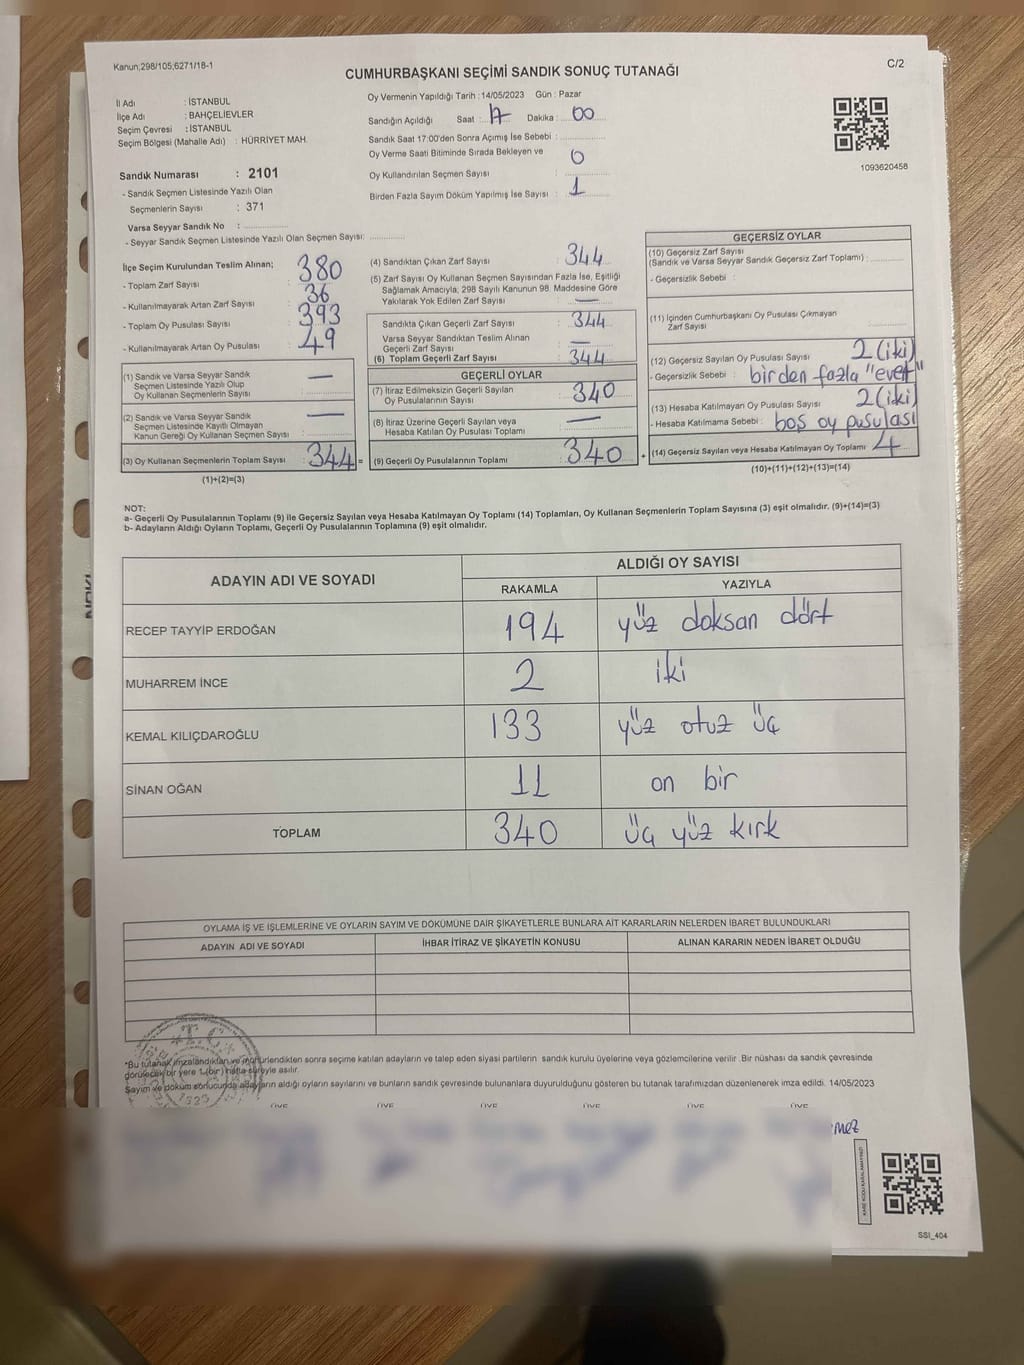 Kanun;298/105;6271/18-1
C/2
CUMHURBAŞKANI SEÇİMİ SANDIK SONUÇ TUTANAĞI
İl Adı : İSTANBUL
İlçe Adı : BAHÇELİEVLER
Seçim Çevresi : İSTANBUL
Seçim Bölgesi (Mahalle Adı) : HÜRRİYET MAH.
Sandık Numarası : 2101
- Sandık Seçmen Listesinde Yazılı Olan
Seçmenlerin Sayısı : 371
Varsa Seyyar Sandık No :
- Seyyar Sandık Seçmen Listesinde Yazılı Olan Seçmen Sayısı:
Oy Vermenin Yapıldığı Tarih :14/05/2023 Gün : Pazar
Sandığın Açıldığı Saat : 17 Dakika : 00
Sandık Saat 17:00'den Sonra Açımış İse Sebebi :
Oy Verme Saati Bitiminde Sırada Bekleyen ve
Oy Kullandırılan Seçmen Sayısı : 0
Birden Fazla Sayım Döküm Yapılmış İse Sayısı : 1
1093620458
İlçe Seçim Kurulundan Teslim Alınan;
- Toplam Zarf Sayısı : 380
- Kullanılmayarak Artan Zarf Sayısı : 36
- Toplam Oy Pusulası Sayısı : 393
- Kullanılmayarak Artan Oy Pusulası : 49
(1) Sandık ve Varsa Seyyar Sandık
Seçmen Listesinde Yazılı Olup
Oy Kullanan Seçmenlerin Sayısı : —
(2) Sandık ve Varsa Seyyar Sandık
Seçmen Listesinde Kayıtlı Olmayan
Kanun Gereği Oy Kullanan Seçmen Sayısı : —
(3) Oy Kullanan Seçmenlerin Toplam Sayısı : 344 =
(1)+(2)=(3)
(4) Sandıktan Çıkan Zarf Sayısı : 344
(5) Zarf Sayısı Oy Kullanan Seçmen Sayısından Fazla İse, Eşitliği
Sağlamak Amacıyla; 298 Sayılı Kanunun 98. Maddesine Göre
Yakılarak Yok Edilen Zarf Sayısı : —
Sandıkta Çıkan Geçerli Zarf Sayısı : 344
Varsa Seyyar Sandıktan Teslim Alınan
Geçerli Zarf Sayısı : —
(6) Toplam Geçerli Zarf Sayısı : 344
GEÇERLİ OYLAR
(7) İtiraz Edilmeksizin Geçerli Sayılan
Oy Pusulalarının Sayısı : 340
(8) İtiraz Üzerine Geçerli Sayılan veya
Hesaba Katılan Oy Pusulası Toplamı : —
(9) Geçerli Oy Pusulalarının Toplamı : 340 +
GEÇERSİZ OYLAR
(10) Geçersiz Zarf Sayısı
(Sandık ve Varsa Seyyar Sandık Geçersiz Zarf Toplamı) :
- Geçersizlik Sebebi :
(11) İçinden Cumhurbaşkanı Oy Pusulası Çıkmayan
Zarf Sayısı :
(12) Geçersiz Sayılan Oy Pusulası Sayısı : 2 (iki)
- Geçersizlik Sebebi : birden fazla "evet"
(13) Hesaba Katılmayan Oy Pusulası Sayısı : 2 (iki)
- Hesaba Katılmama Sebebi : boş oy pusulası
(14) Geçersiz Sayılan veya Hesaba Katılmayan Oy Toplamı : 4
(10)+(11)+(12)+(13)=(14)
NOT:
a- Geçerli Oy Pusulalarının Toplamı (9) ile Geçersiz Sayılan veya Hesaba Katılmayan Oy Toplamı (14) Toplamları, Oy Kullanan Seçmenlerin Toplam Sayısına (3) eşit olmalıdır. (9)+(14)=(3)
b- Adayların Aldığı Oyların Toplamı, Geçerli Oy Pusulalarının Toplamına (9) eşit olmalıdır.
ADAYIN ADI VE SOYADI ALDIĞI OY SAYISI
RAKAMLA YAZIYLA
RECEP TAYYİP ERDOĞAN 194 yüz doksan dört
MUHARREM İNCE 2 iki
KEMAL KILIÇDAROĞLU 133 yüz otuz üç
SİNAN OĞAN 11 on bir
TOPLAM 340 üç yüz kırk
OYLAMA İŞ VE İŞLEMLERİNE VE OYLARIN SAYIM VE DÖKÜMÜNE DAİR ŞİKAYETLERLE BUNLARA AİT KARARLARIN NELERDEN İBARET BULUNDUKLARI
ADAYIN ADI VE SOYADI İHBAR İTİRAZ VE ŞİKAYETİN KONUSU ALINAN KARARIN NEDEN İBARET OLDUĞU
*Bu tutanak imzalandıktan ve mühürlendikten sonra seçime katılan adayların ve talep eden siyasi partilerin sandık kurulu üyelerine veya gözlemcilerine verilir. Bir nüshası da sandık çevresinde
görülecek bir yere 1 (bir) hafta süreyle asılır.
Sayım ve döküm sonucunda adayların aldığı oyların sayılarını ve bunların sandık çevresinde bulunanlara duyurulduğunu gösteren bu tutanak tarafımızdan düzenlenerek imza edildi. 14/05/2023
ÜYE ÜYE ÜYE ÜYE ÜYE ÜYE
SSI_404